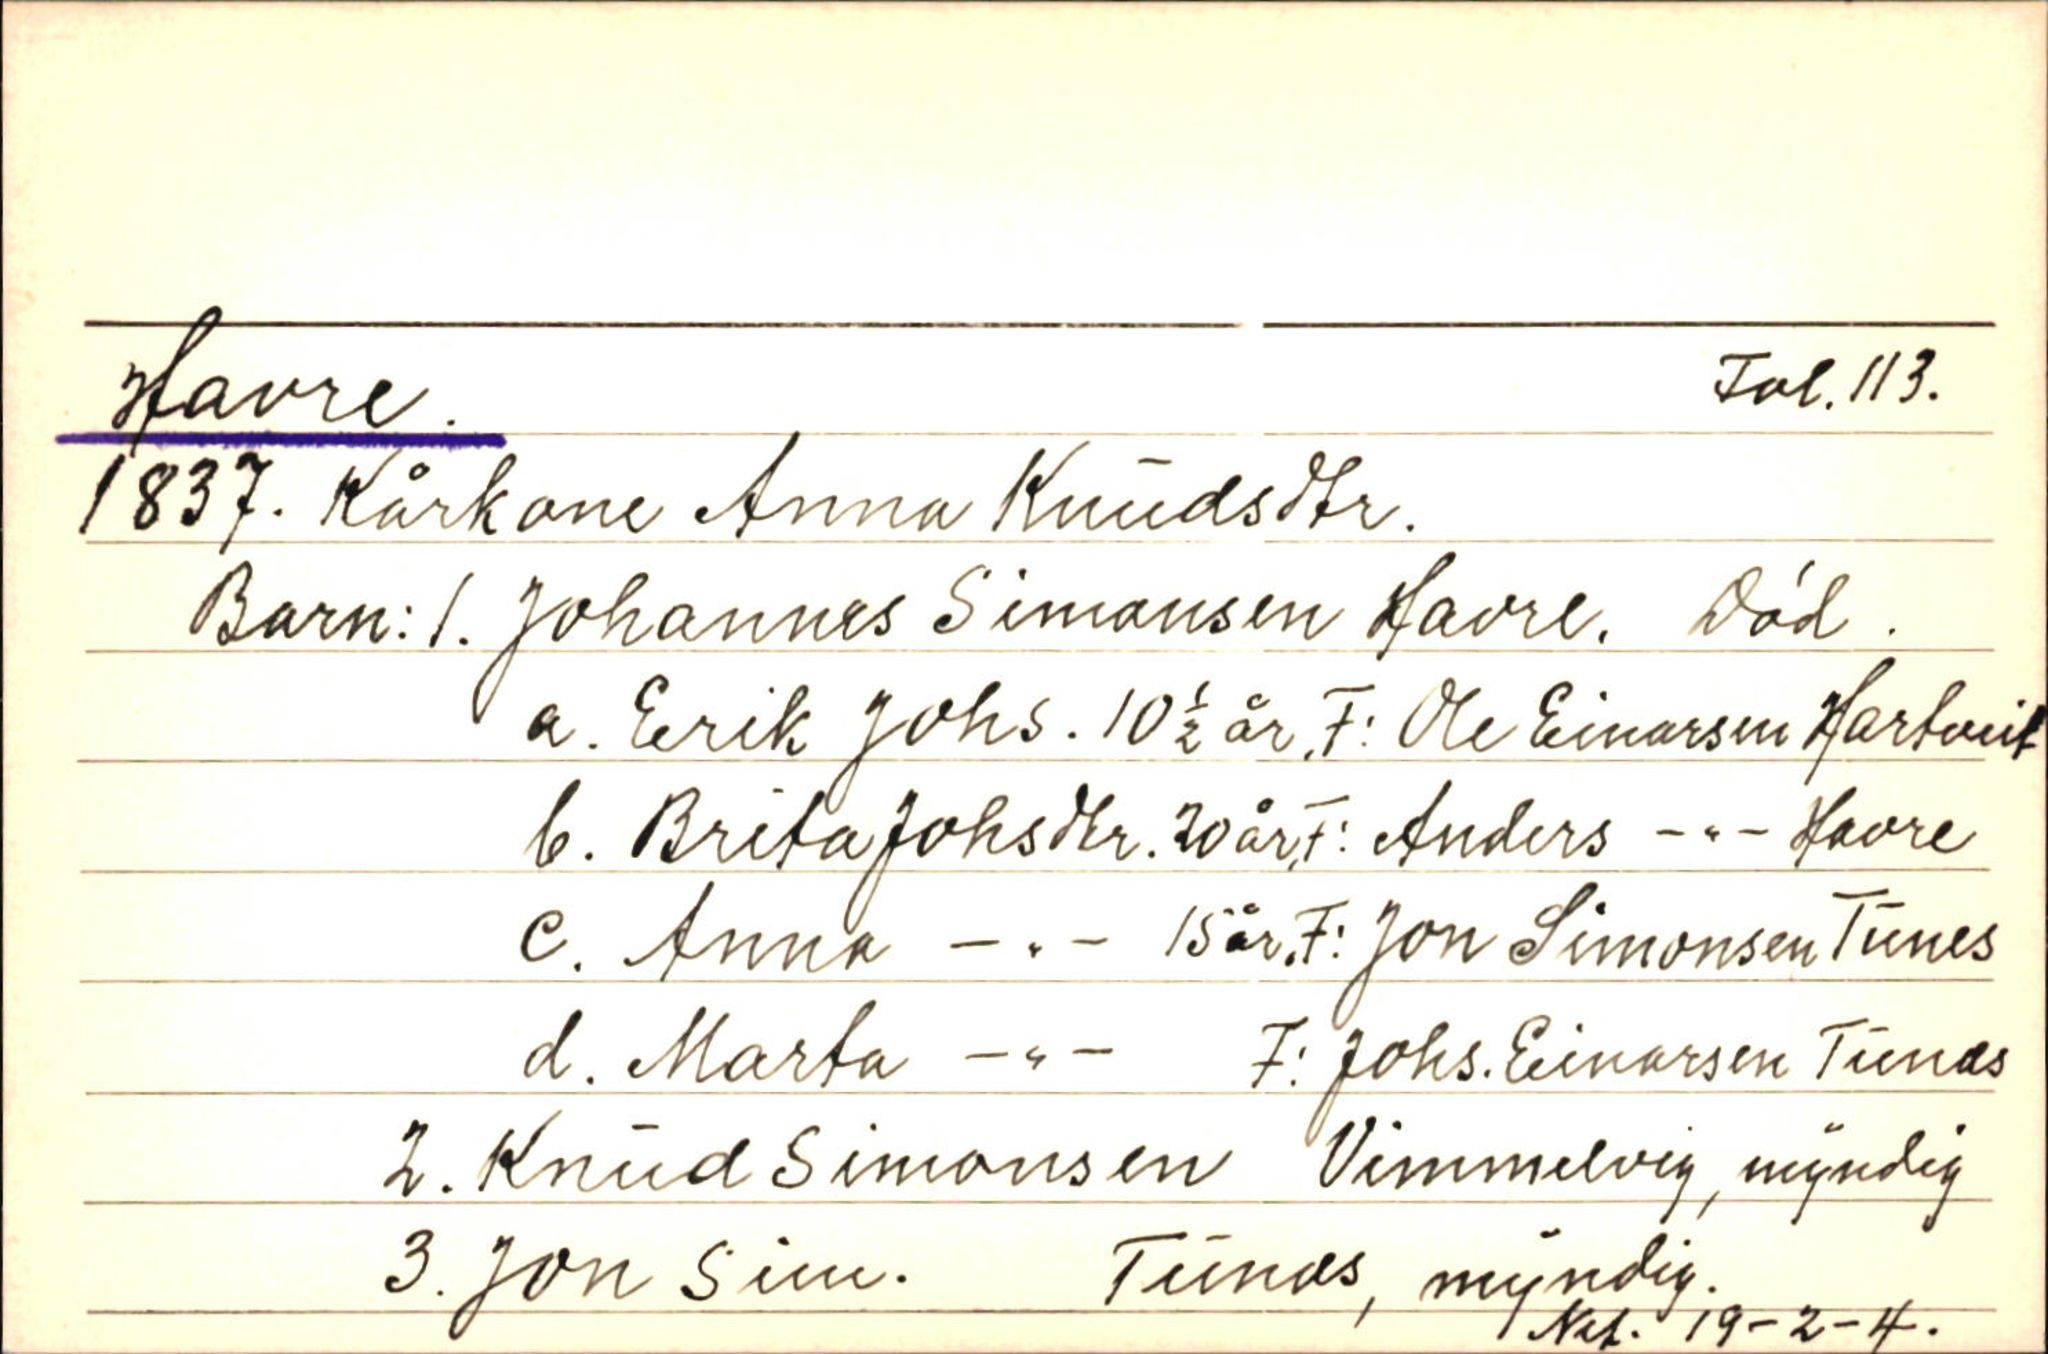 Havre. Fol. 113.
1837. Kårkone Anna Knudsdtr.
Barn: 1. Johannes Simonsen Havre. Død.
a. Erik Johs. 10½ år, F: Ole Einarsen Hartveit
b. Brita Johsdtr. 20 år, F: Anders -"- Havre
c. Anna -"- 15 år, F: Jon Simonsen Tunes
d. Marta -"- F: Johs. Einarsen Tunæs
2. Knud Simonsen Vimmelvig, myndig
3. Jon Sim. Tunæs, myndig.
Net. 19-2-4.